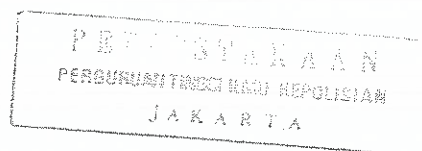 PERPUSTAKAAN
PERGURUAN TINGGI ILMU KEPOLISIAN
JAKARTA